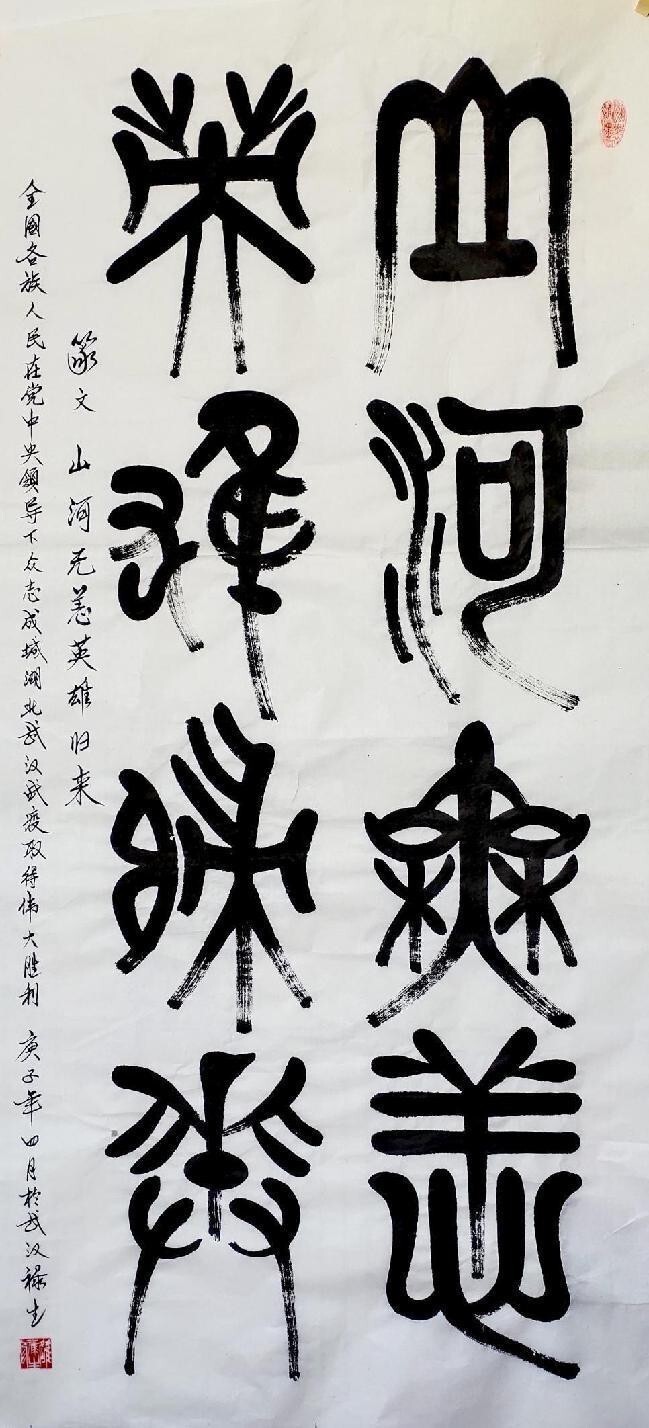 山河無恙
英雄歸來
篆文 山河无恙英雄归来
全国各族人民在党中央领导下众志成城湖北武汉战疫取得伟大胜利 庚子年四月於武汉禄生